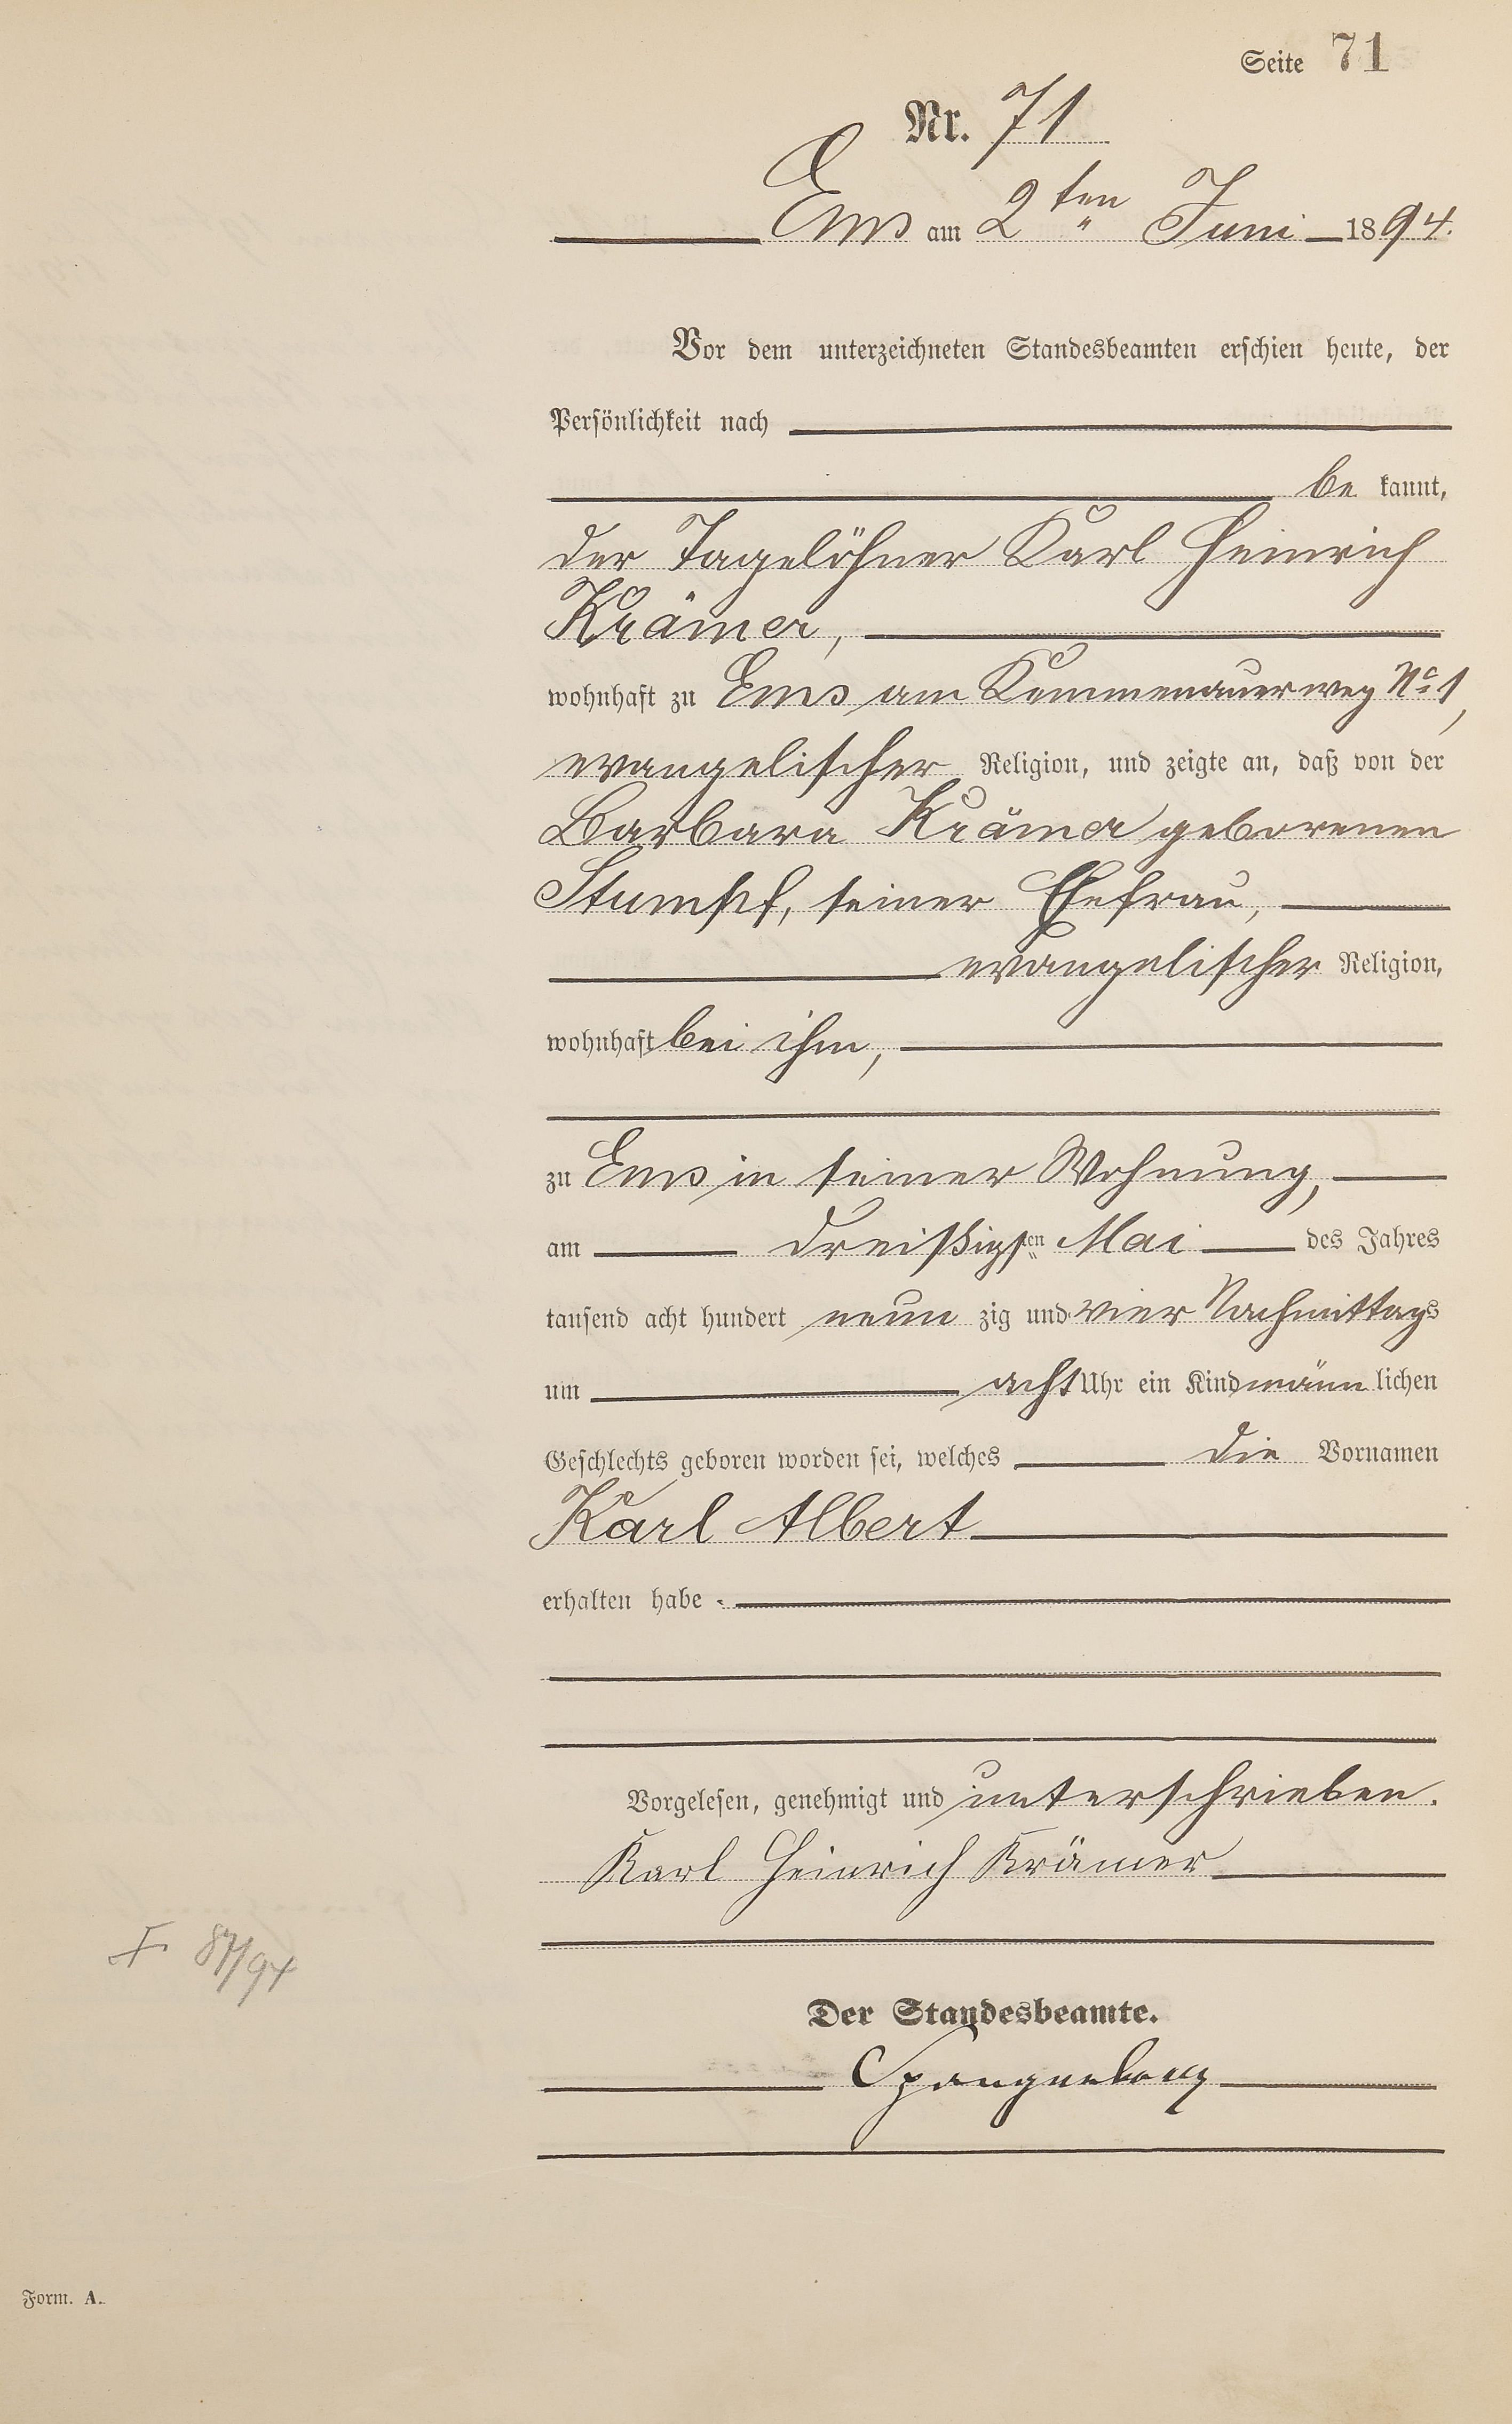 Seite 71
Nr. 71
Ems am 2ten Juni 1894.
Vor dem unterzeichneten Standesbeamten erschien heute, der
Persönlichkeit nach
be kannt,
der Tagelöhner Karl Heinrich
Krämer,
wohnhaft zu Ems am Kemmenauerweg No 1,
evangelischer Religion, und zeigte an, daß von der
Barbara Krämer geborenen
Stumpf, seiner Ehefrau,
evangelischer Religion,
wohnhaft bei ihm,
zu Ems in seiner Wohnung,
am dreißigsten Mai des Jahres
tausend acht hundert neun zig und vier Nachmittags
um acht Uhr ein Kind männ lichen
Geschlechts geboren worden sei, welches die Vornamen
Karl Albert
erhalten habe.
Vorgelesen, genehmigt und unterschrieben.
Karl Heinrich Krämer
87/94
Der Standesbeamte.
Spangenberg
Form. A.